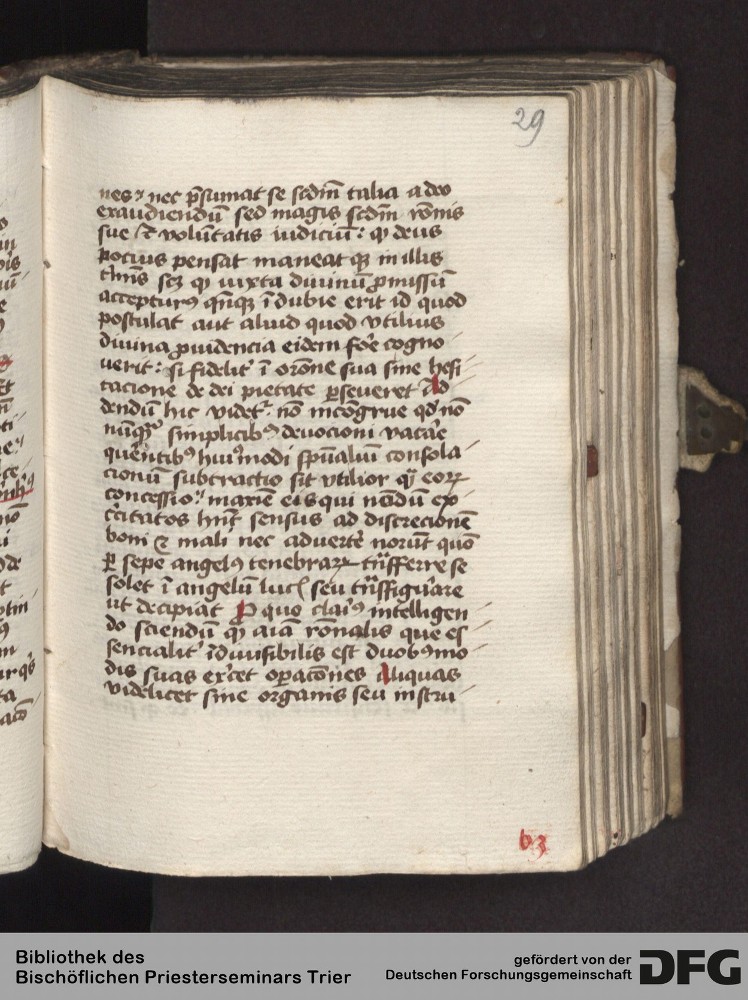 29
nes / nec p̄sumat se scdm̄ talia a deo
exaudiendū sed magis scdm̄ rōnis
sue & volūtatis iudiciū : qꝫ deus
pocius pensat maneat qꝫ in illis
t'mīs scꝫ qꝫ iuxta diuinū ꝓmissū
accepturꝰ qn̄qꝫ īdubie erit id quod
postulat aut aliud quod vtilius
diuina ꝓuidencia eidem fore cogno
uerit : si fidelit' ī orōne sua sine hesi
tacione de dei pietate ꝑseueret Ad
dendū hic videt' nō incōgrue qd' nō
nūqȝ simplicibꝰ deuocioni vacāe
querētibꝰ huiꝰmodi spūaliū consola
cionū subtractio sit vtilior qȝ eoꝝ
concessio / maxīe eis qui nōdū ex
ercitatos hn̄t sensus ad discrecionē
boni & mali nec aduerte' norūt quō
ꝑ sepe angelꝰ tenebraꝝ trāsferre se
solet ī angelū luc' seu trāsfigurare
ut decipiat Pro quo clariꝰ intelligen
do sciendū qꝫ aīa rōnalis que es
sencialit' īdiuisibilis est duobꝰ mo
dis suas ex'cet opacōnes Aliquas
videlicet sine organis seu instru
b3
Bibliothek des
Bischöflichen Priesterseminars Trier
gefördert von der
Deutschen Forschungsgemeinschaft
DFG